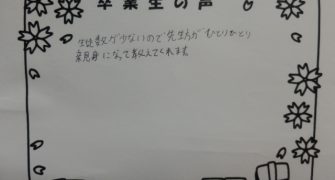 卒業生の声
生徒数が少ないので先生方がひとりひとり
親身になって教えてくれます